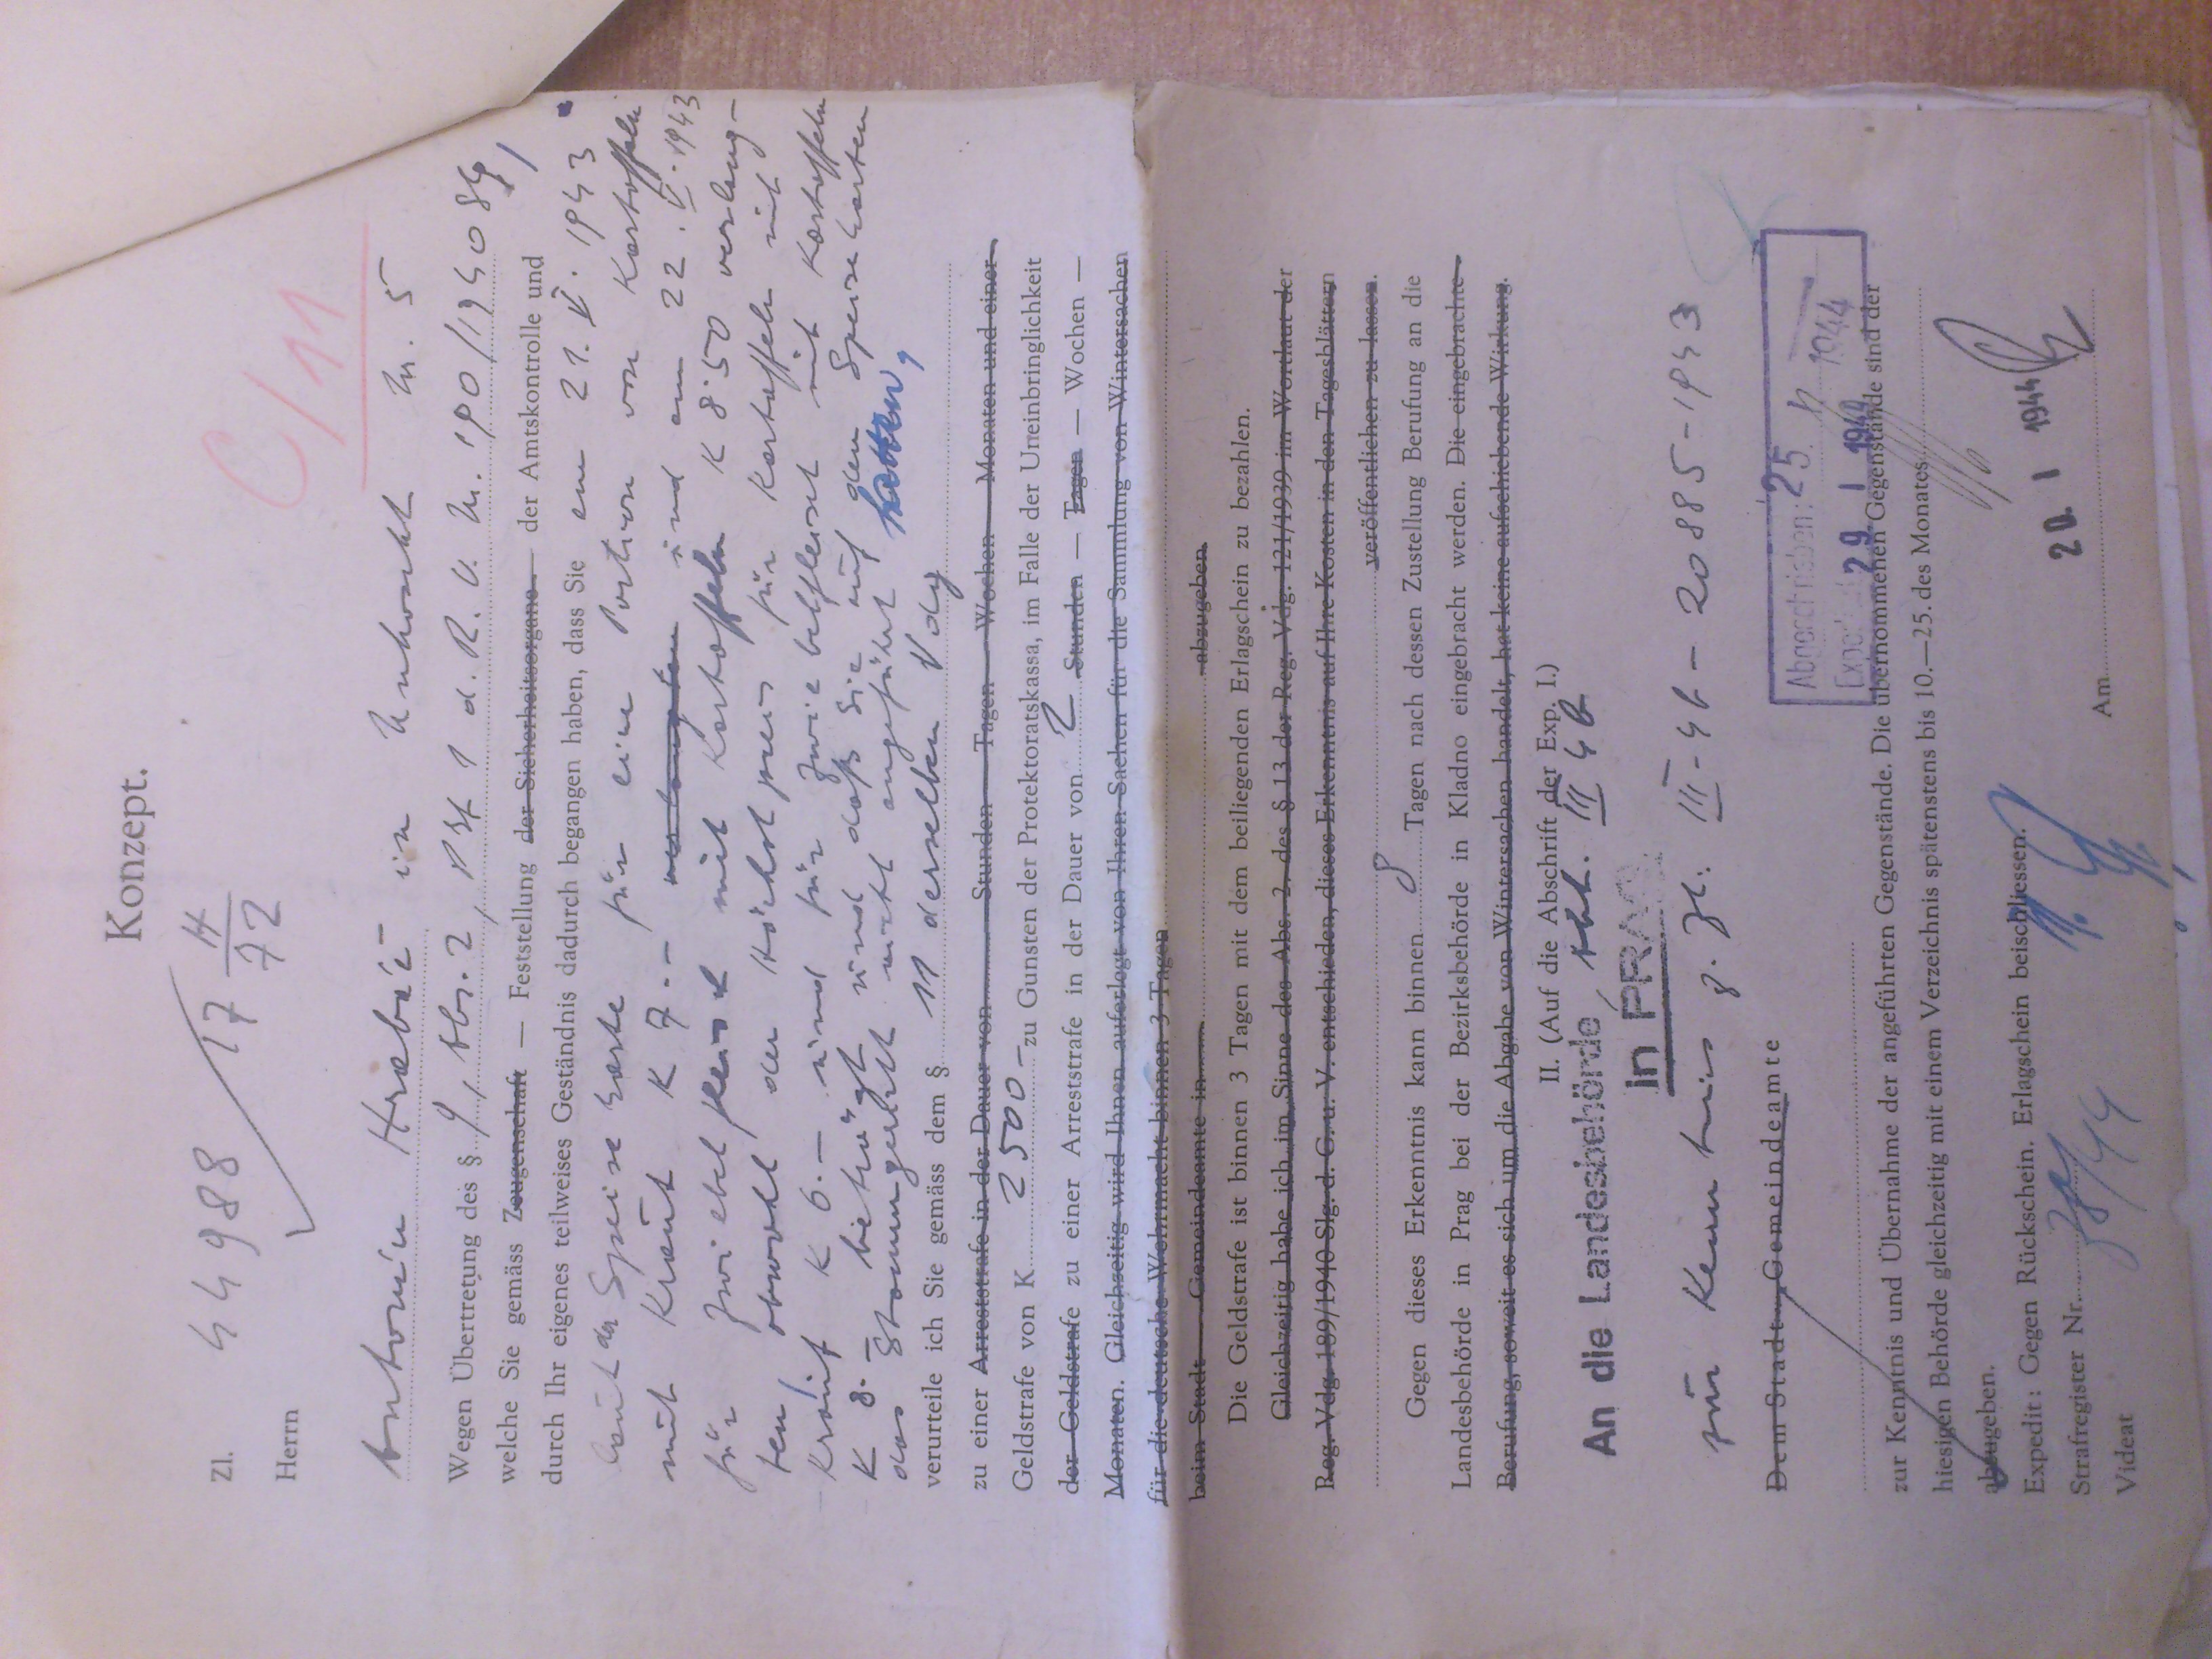 Konzept.
Zl. 44988 / 17 H/72
Herrn
C/11
Antonín Hrabáč in Unhoscht Nr. 5
Wegen Übertretung des § 9, Abs. 2, Pkt 1 d. R. V. Nr. 190/1940 Slg,
welche Sie gemäss Zeugenschaft — Feststellung der Sicherheitsorgane — der Amtskontrolle und
durch Ihr eigenes teilweises Geständnis dadurch begangen haben, dass Sie am 21. V. 1943
laut der Speisekarte für eine Portion von Kartoffeln
mit Kraut K 7.– verlangten und am 22. V. 1943
für Zwiebelfleisch mit Kartoffeln K 8·50 verlang-
ten, obwohl der Höchstpreis für Kartoffeln mit
Kraut K 6.– und für Zwiebelfleisch mit Kartoffeln
K 8.– beträgt und daß Sie auf den Speisekarten
das Stammgericht nicht angeführt hatten,
verurteile ich Sie gemäss dem § 11 derselben Vdg
zu einer Arreststrafe in der Dauer von Stunden — Tagen — Wochen — Monaten und einer
Geldstrafe von K 2500.- zu Gunsten der Protektoratskassa, im Falle der Uneinbringlichkeit
der Geldstrafe zu einer Arreststrafe in der Dauer von 2 Stunden — Tagen — Wochen —
Monaten. Gleichzeitig wird Ihnen auferlegt von Ihren Sachen für die Sammlung von Wintersachen
für die deutsche Wehrmacht binnen 3 Tagen
beim Stadt — Gemeindeamte in abzugeben.
Die Geldstrafe ist binnen 3 Tagen mit dem beiliegenden Erlagschein zu bezahlen.
Gleichzeitig habe ich im Sinne des Abs. 2. des § 13 der Reg. Vdg. 121/1939 im Wortlaut der
Reg. Vdg. 189/1940 Slg. d. G. u. V. entschieden, dieses Erkenntnis auf Ihre Kosten in den Tagesblättern
veröffentlichen zu lassen.
Gegen dieses Erkenntnis kann binnen 8 Tagen nach dessen Zustellung Berufung an die
Landesbehörde in Prag bei der Bezirksbehörde in Kladno eingebracht werden. Die eingebrachte
Berufung, soweit es sich um die Abgabe von Wintersachen handelt, hat keine aufschiebende Wirkung.
II. (Auf die Abschrift der Exp. I.)
An die Landesbehörde, Abt. III 4b
in PRAG
zur Kenntnis z. Zl. III-4b-20885-1943
Dem Stadt — Gemeindeamte
Abgeschrieben: 25. 1944
Exped 29. I. 1944
zur Kenntnis und Übernahme der angeführten Gegenstände. Die übernommenen Gegenstände sind der
hiesigen Behörde gleichzeitig mit einem Verzeichnis spätenstens bis 10.—25. des Monates
abzugeben.
Expedit: Gegen Rückschein. Erlagschein beischliessen.
Strafregister Nr. 38/44
Videat
Am 20. I 1944